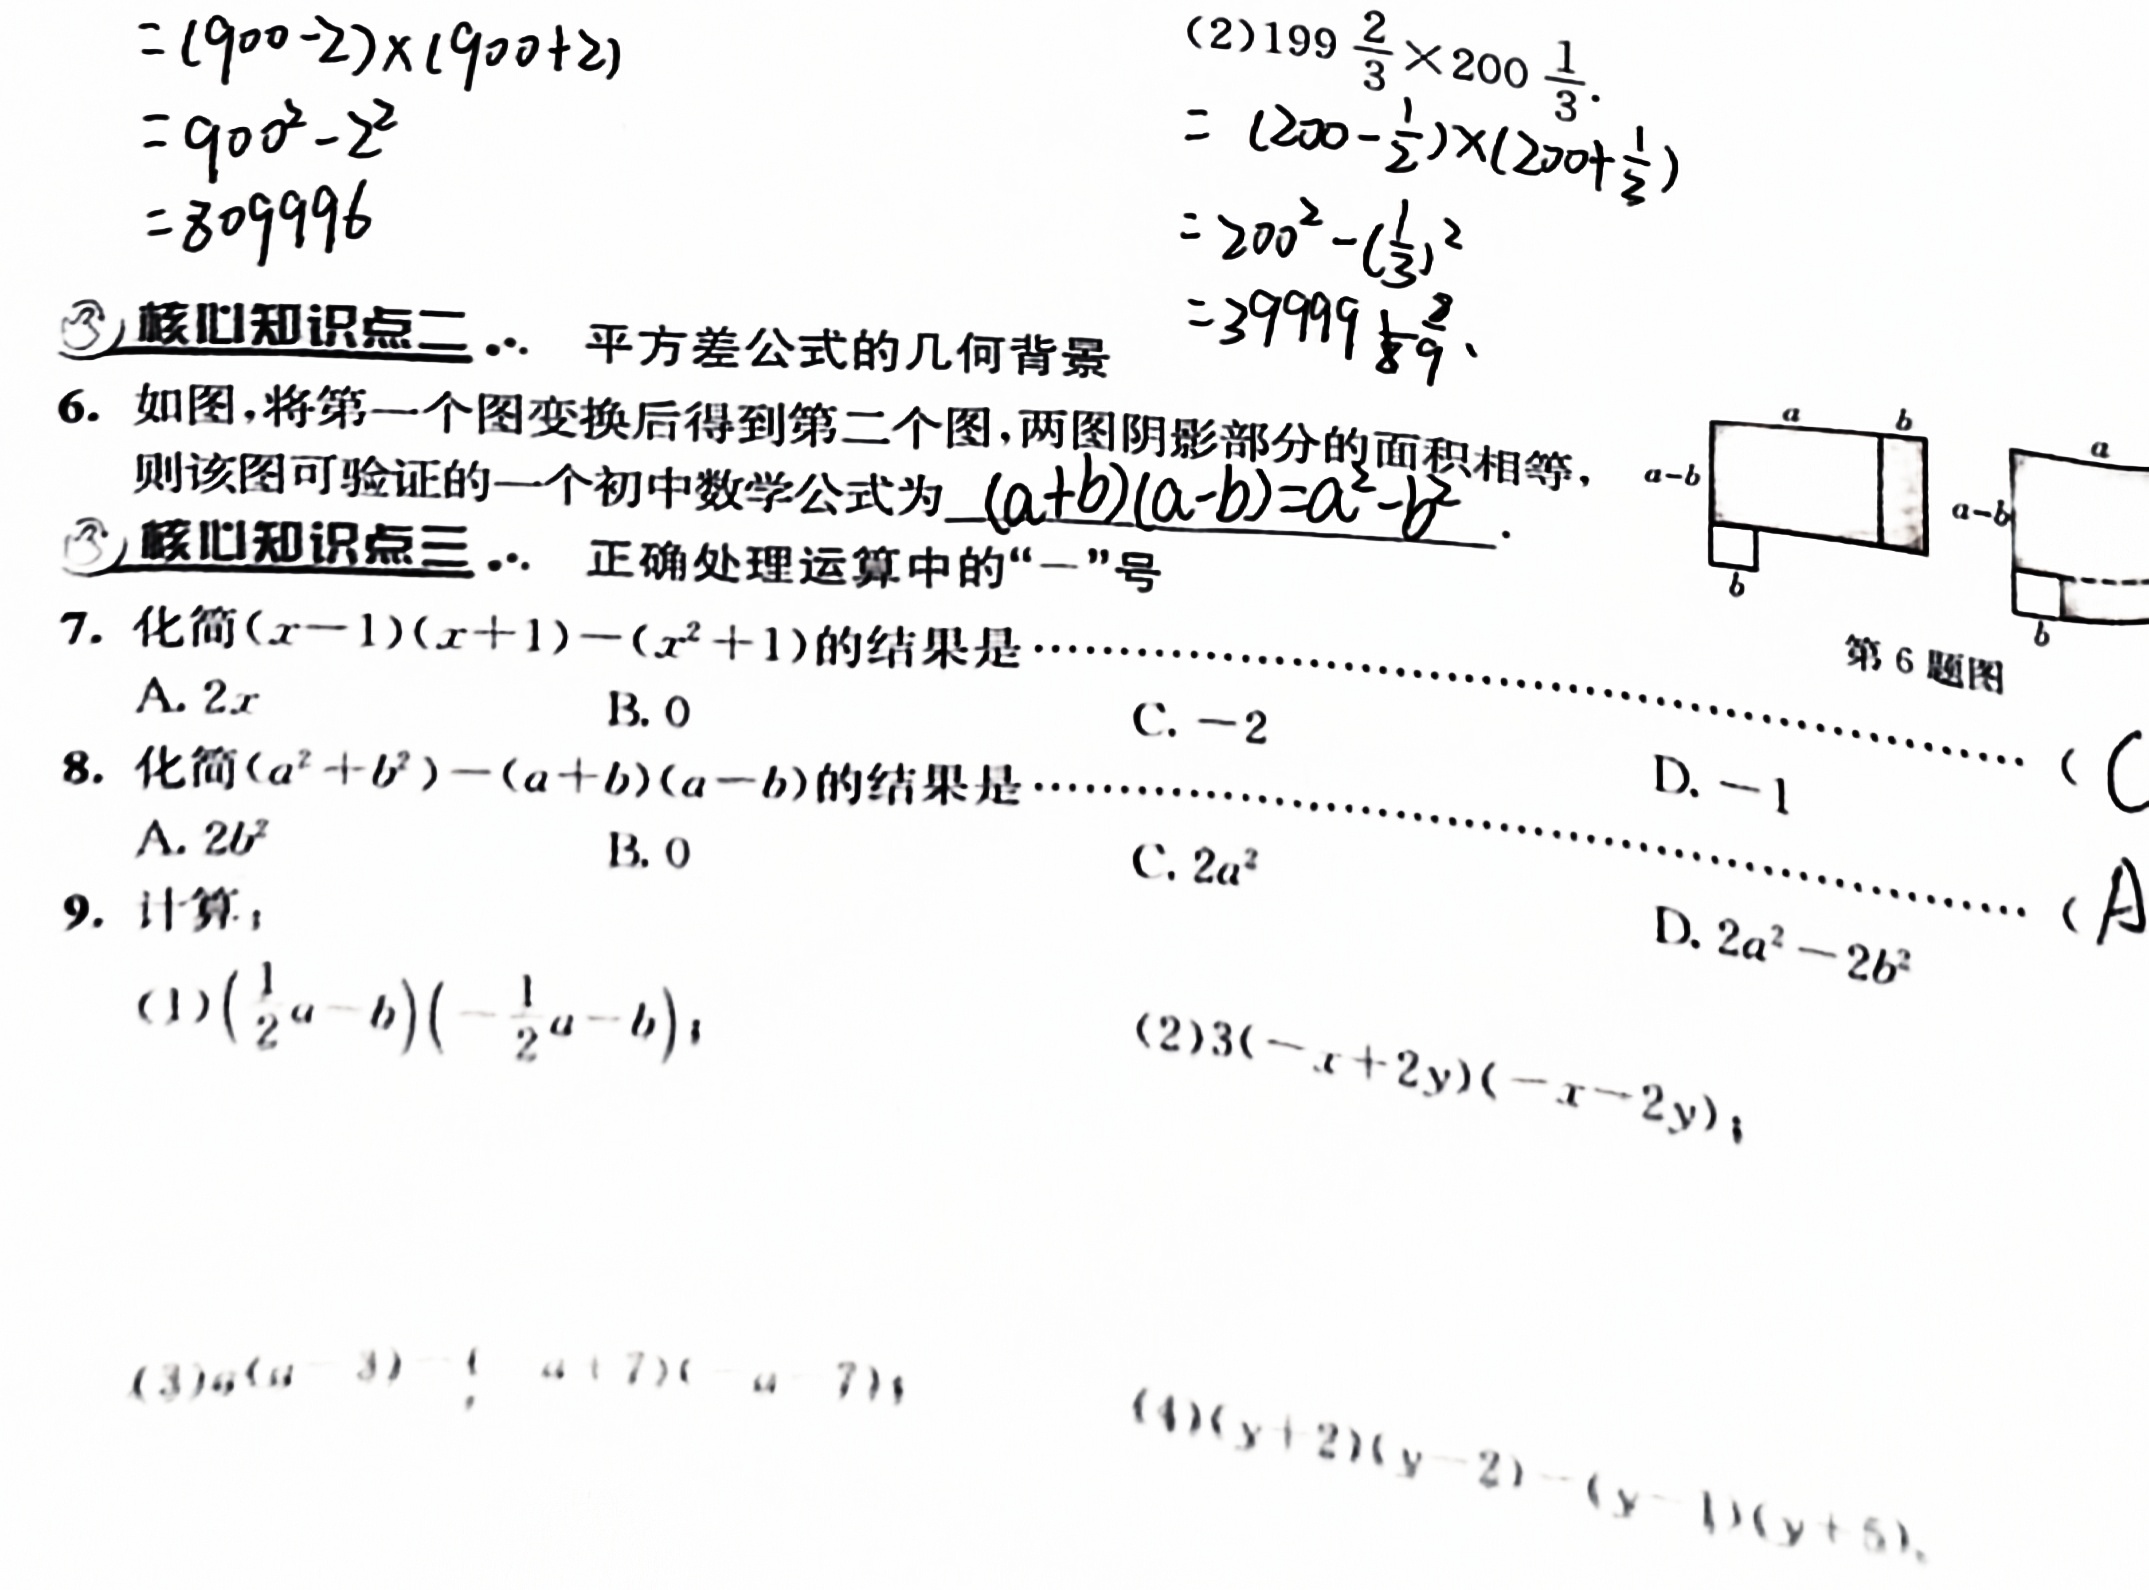 =(900-2)×(900+2)
=900²-2²
=809996
(2)199 2/3×200 1/3.
= (200-1/2)×(200+1/3)
=200²-(1/3)²
=39999 8/9、
核心知识点二 平方差公式的几何背景
6. 如图,将第一个图变换后得到第二个图,两图阴影部分的面积相等,
则该图可验证的一个初中数学公式为 (a+b)(a-b)=a²-b² .
a b
a-b
b
a
a-b
b
第6题图
核心知识点三 正确处理运算中的“-”号
7. 化简(x-1)(x+1)-(x²+1)的结果是……………………( C
A. 2x B. 0 C. -2 D. -1
8. 化简(a²+b²)-(a+b)(a-b)的结果是……………………( A
A. 2b² B. 0 C. 2a² D. 2a²-2b²
9. 计算:
(1)(1/2a-b)(-1/2a-b); (2)3(-x+2y)(-x-2y);
(3)a(a-3)-(-a+7)(-a-7); (4)(y+2)(y-2)-(y-1)(y+5).